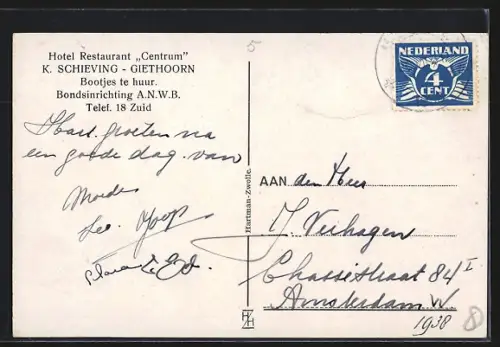 Hotel Restaurant „Centrum"
K. SCHIEVING - GIETHOORN
Bootjes te huur.
Bondsinrichting A.N.W.B.
Telef. 18 Zuid
Hart. groeten na
een goede dag. van
Moeder
Joop
5
Hartman-Zwolle.
HZ
NEDERLAND
4
CENT
AAN den Heer
J. Verhagen
Chasséstraat 84 I
Amsterdam W.
1938
8